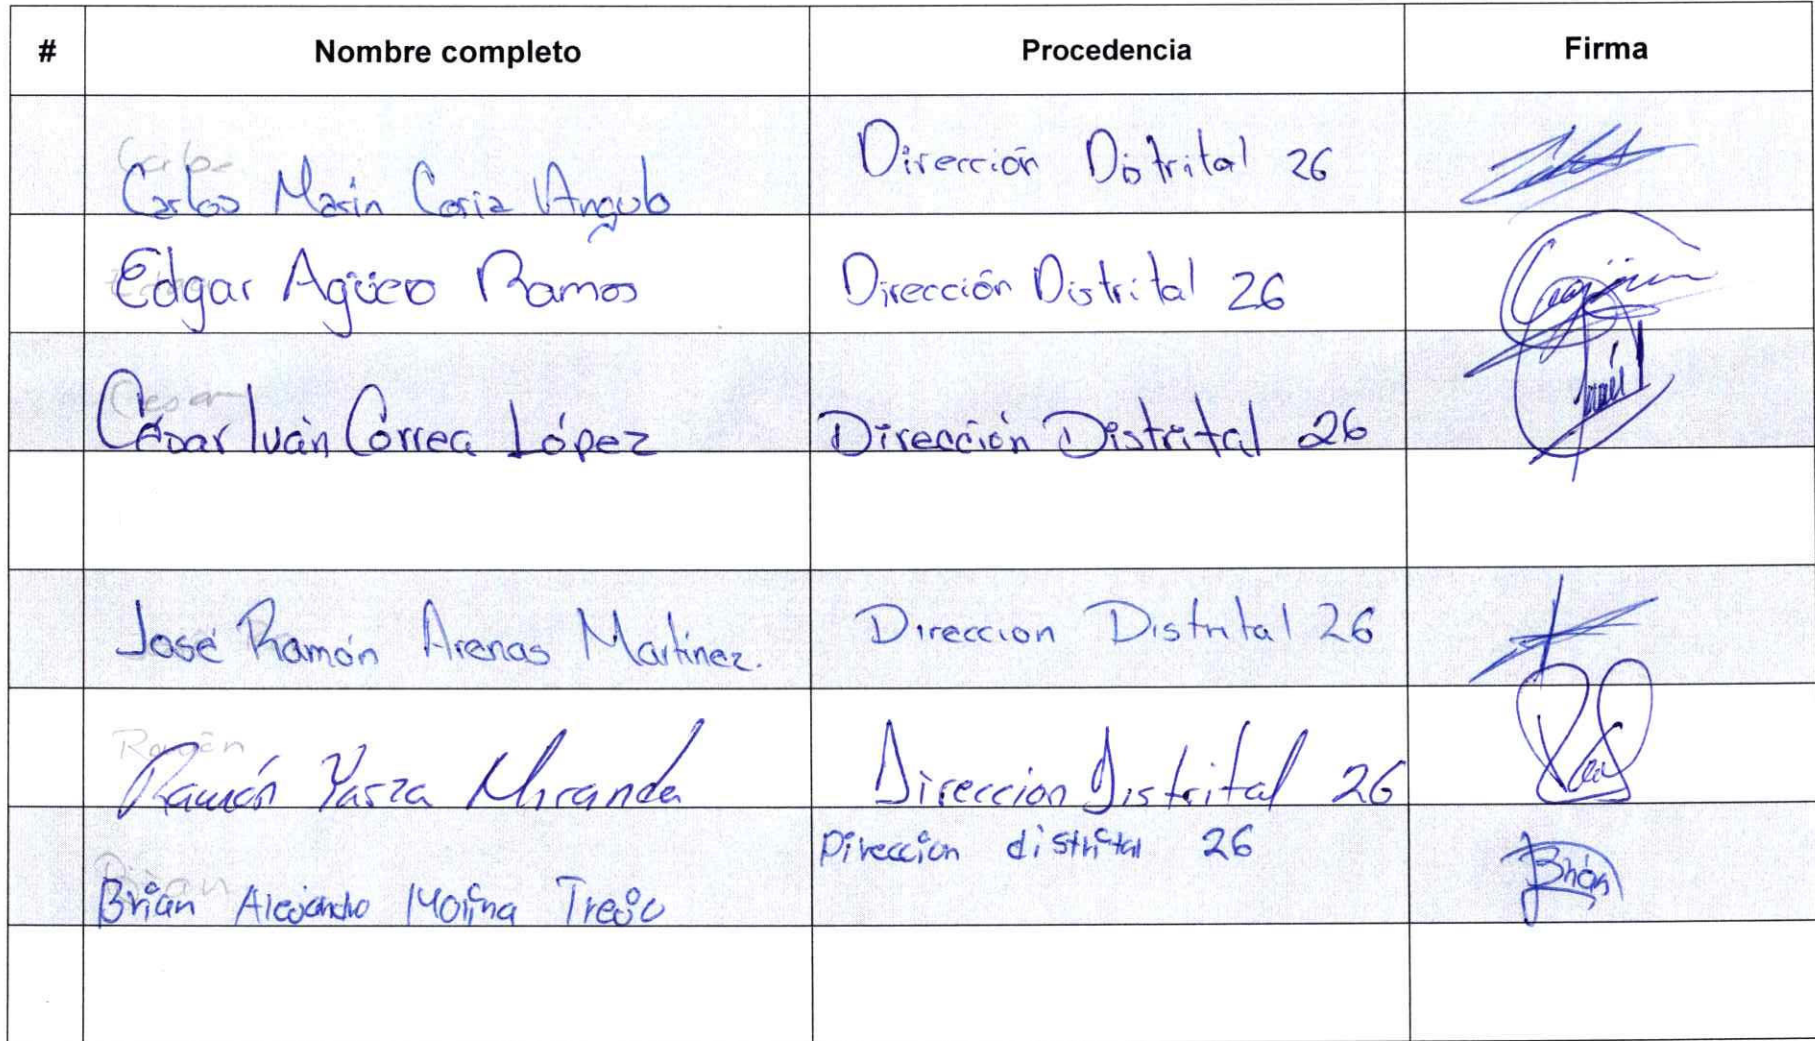 # Nombre completo Procedencia Firma
Carlos
Carlos Marin Coria Angulo Dirección Distrital 26
Edgar Agüero Ramos Dirección Distrital 26
Cesar
César Iván Correa López Dirección Distrital 26
José Ramón Arenas Martínez. Direccion Distrital 26
Ramón
Ramón Miranda Direccion Distrital 26
Direccion distrital 26
Brian
Brian Alejandro Molina Trejo Brian